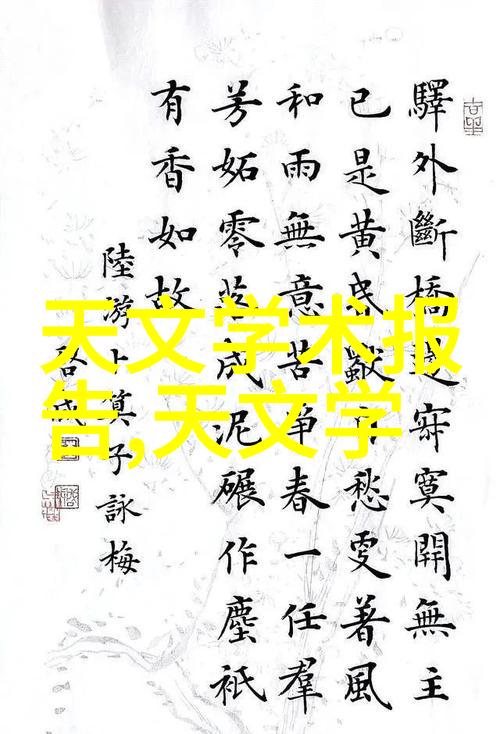 驛外斷橋邊寂寞開無主
已是黃昏獨自愁更著風
和雨無意苦爭春一任羣
芳妬零落成泥碾作塵衹
有香如故
陸游卜算子詠梅
天文学术报
告,天文学